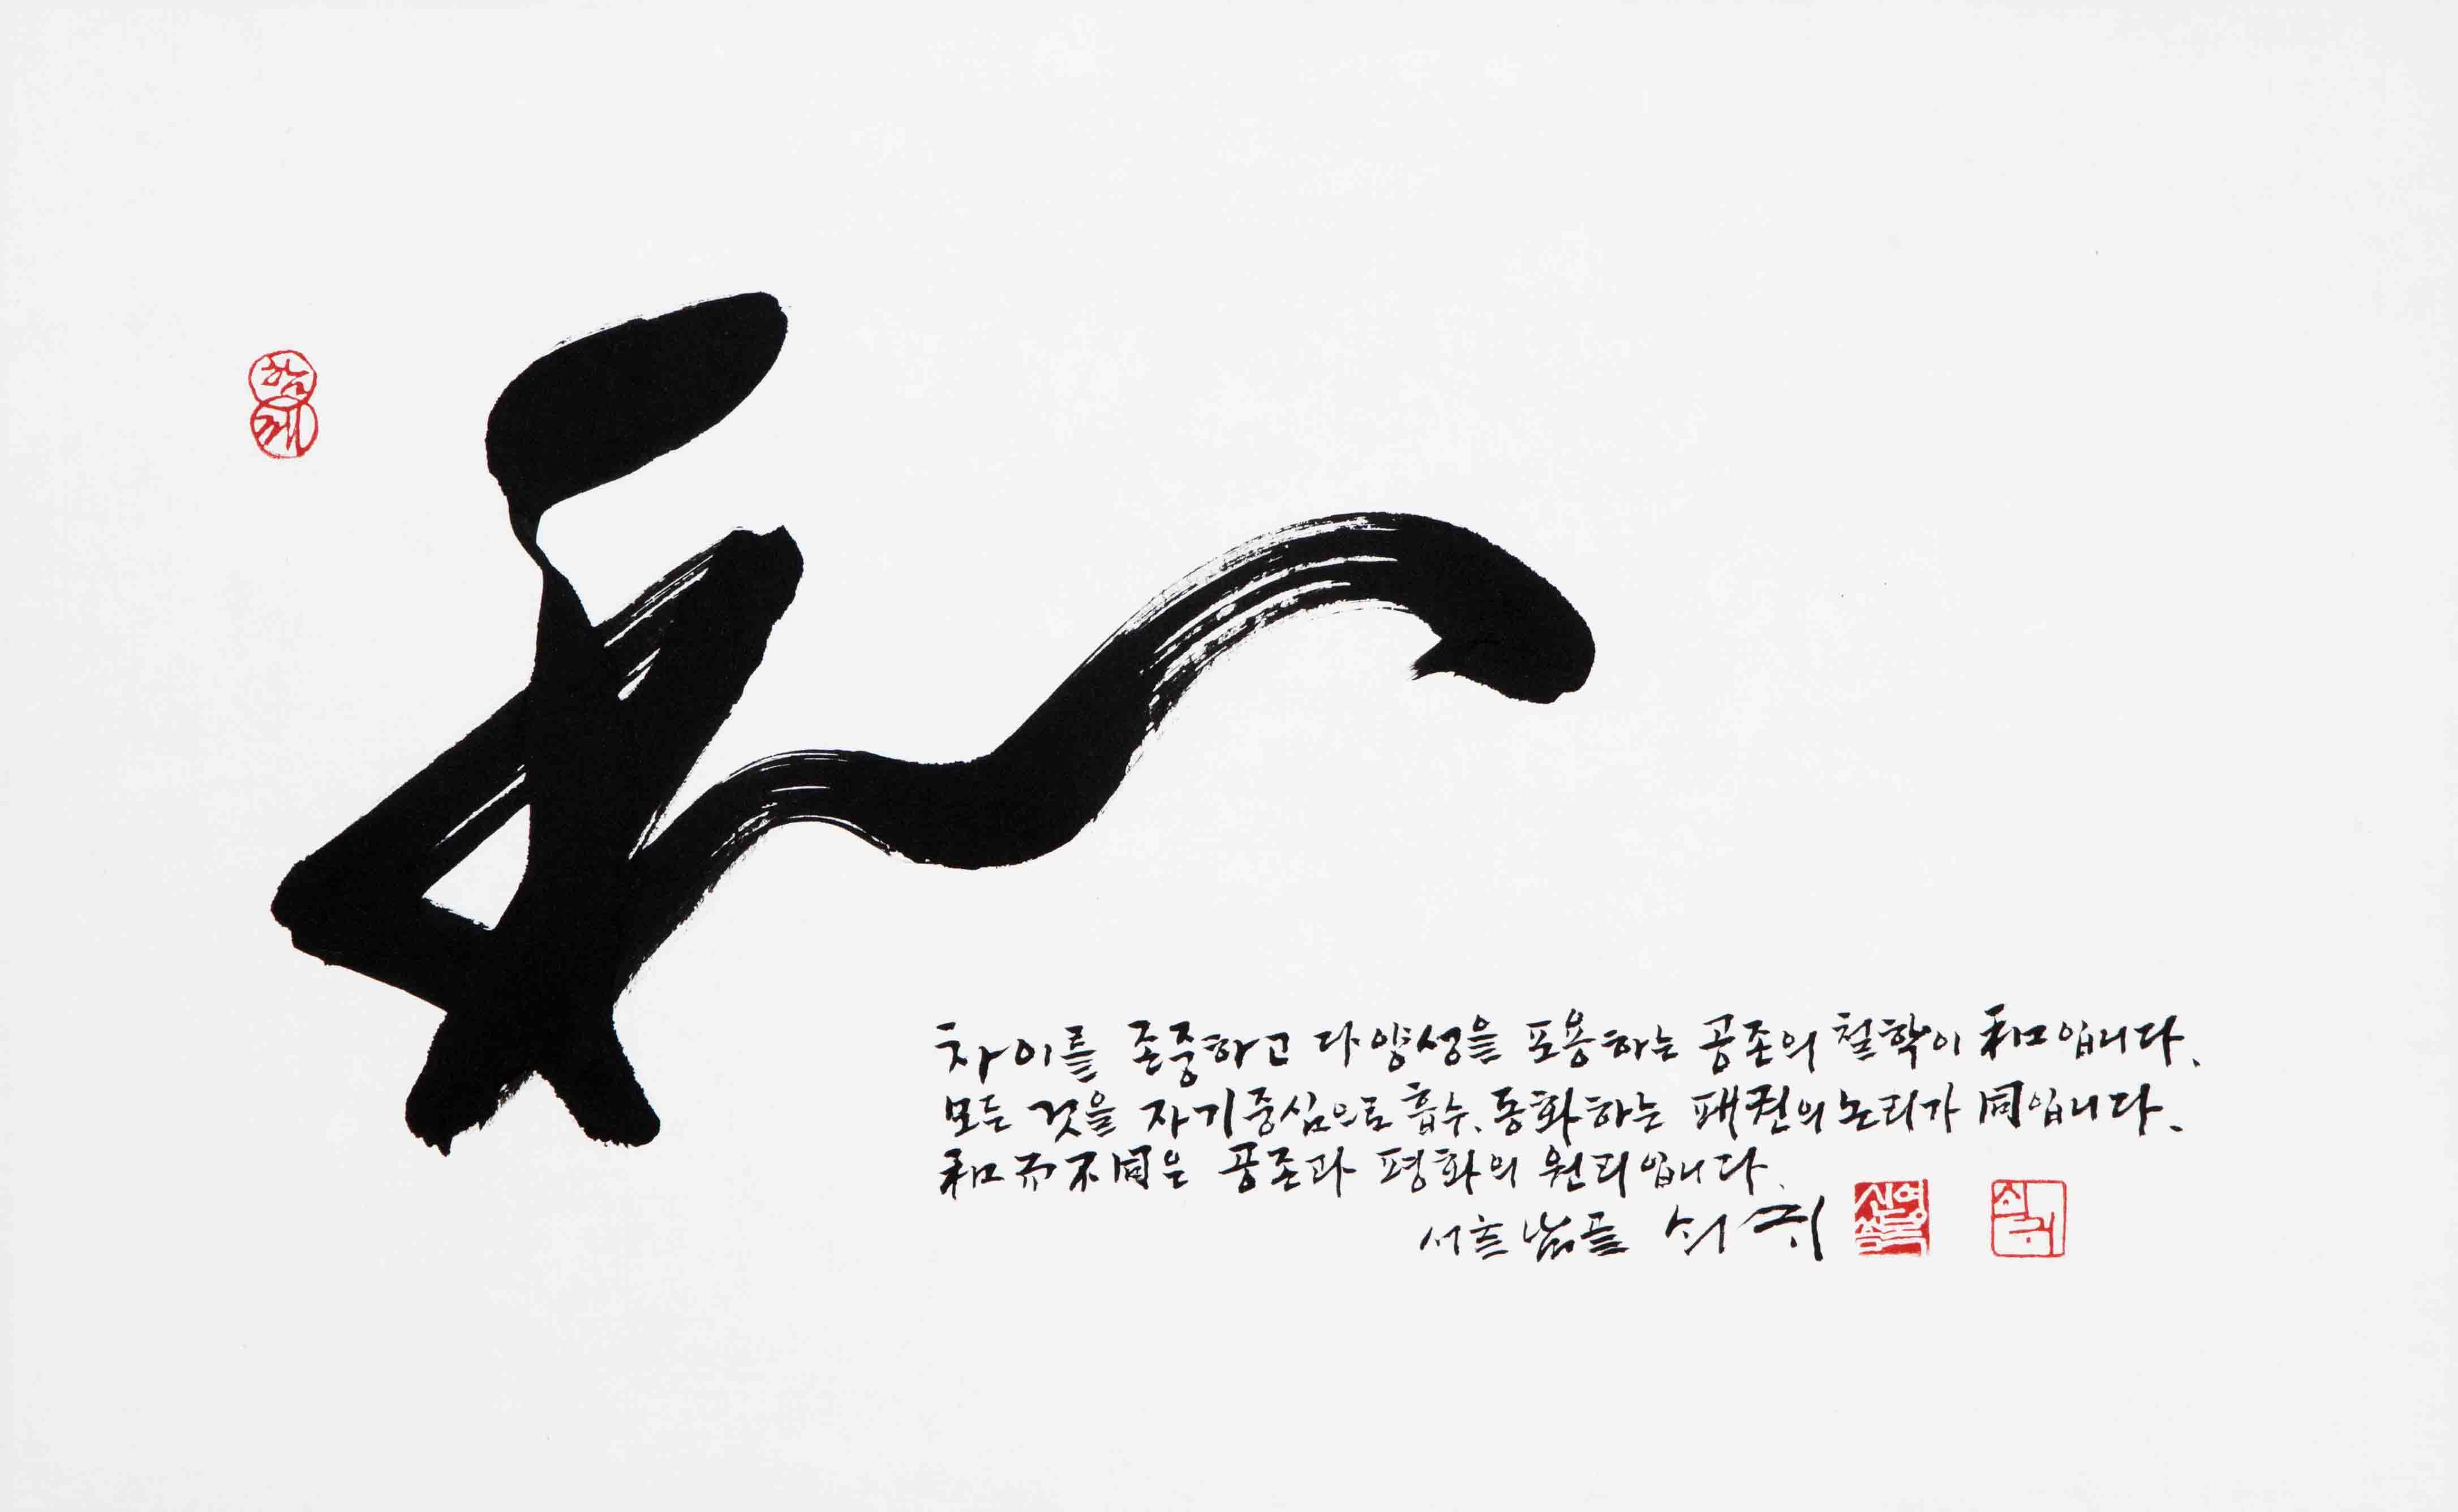 和
차이를 존중하고 다양성을 포용하는 공존의 철학이 和입니다.
모든 것을 자기중심으로 흡수. 동화하는 패권의 논리가 同입니다.
和而不同은 공존과 평화의 원리입니다.
쇠귀
신영복